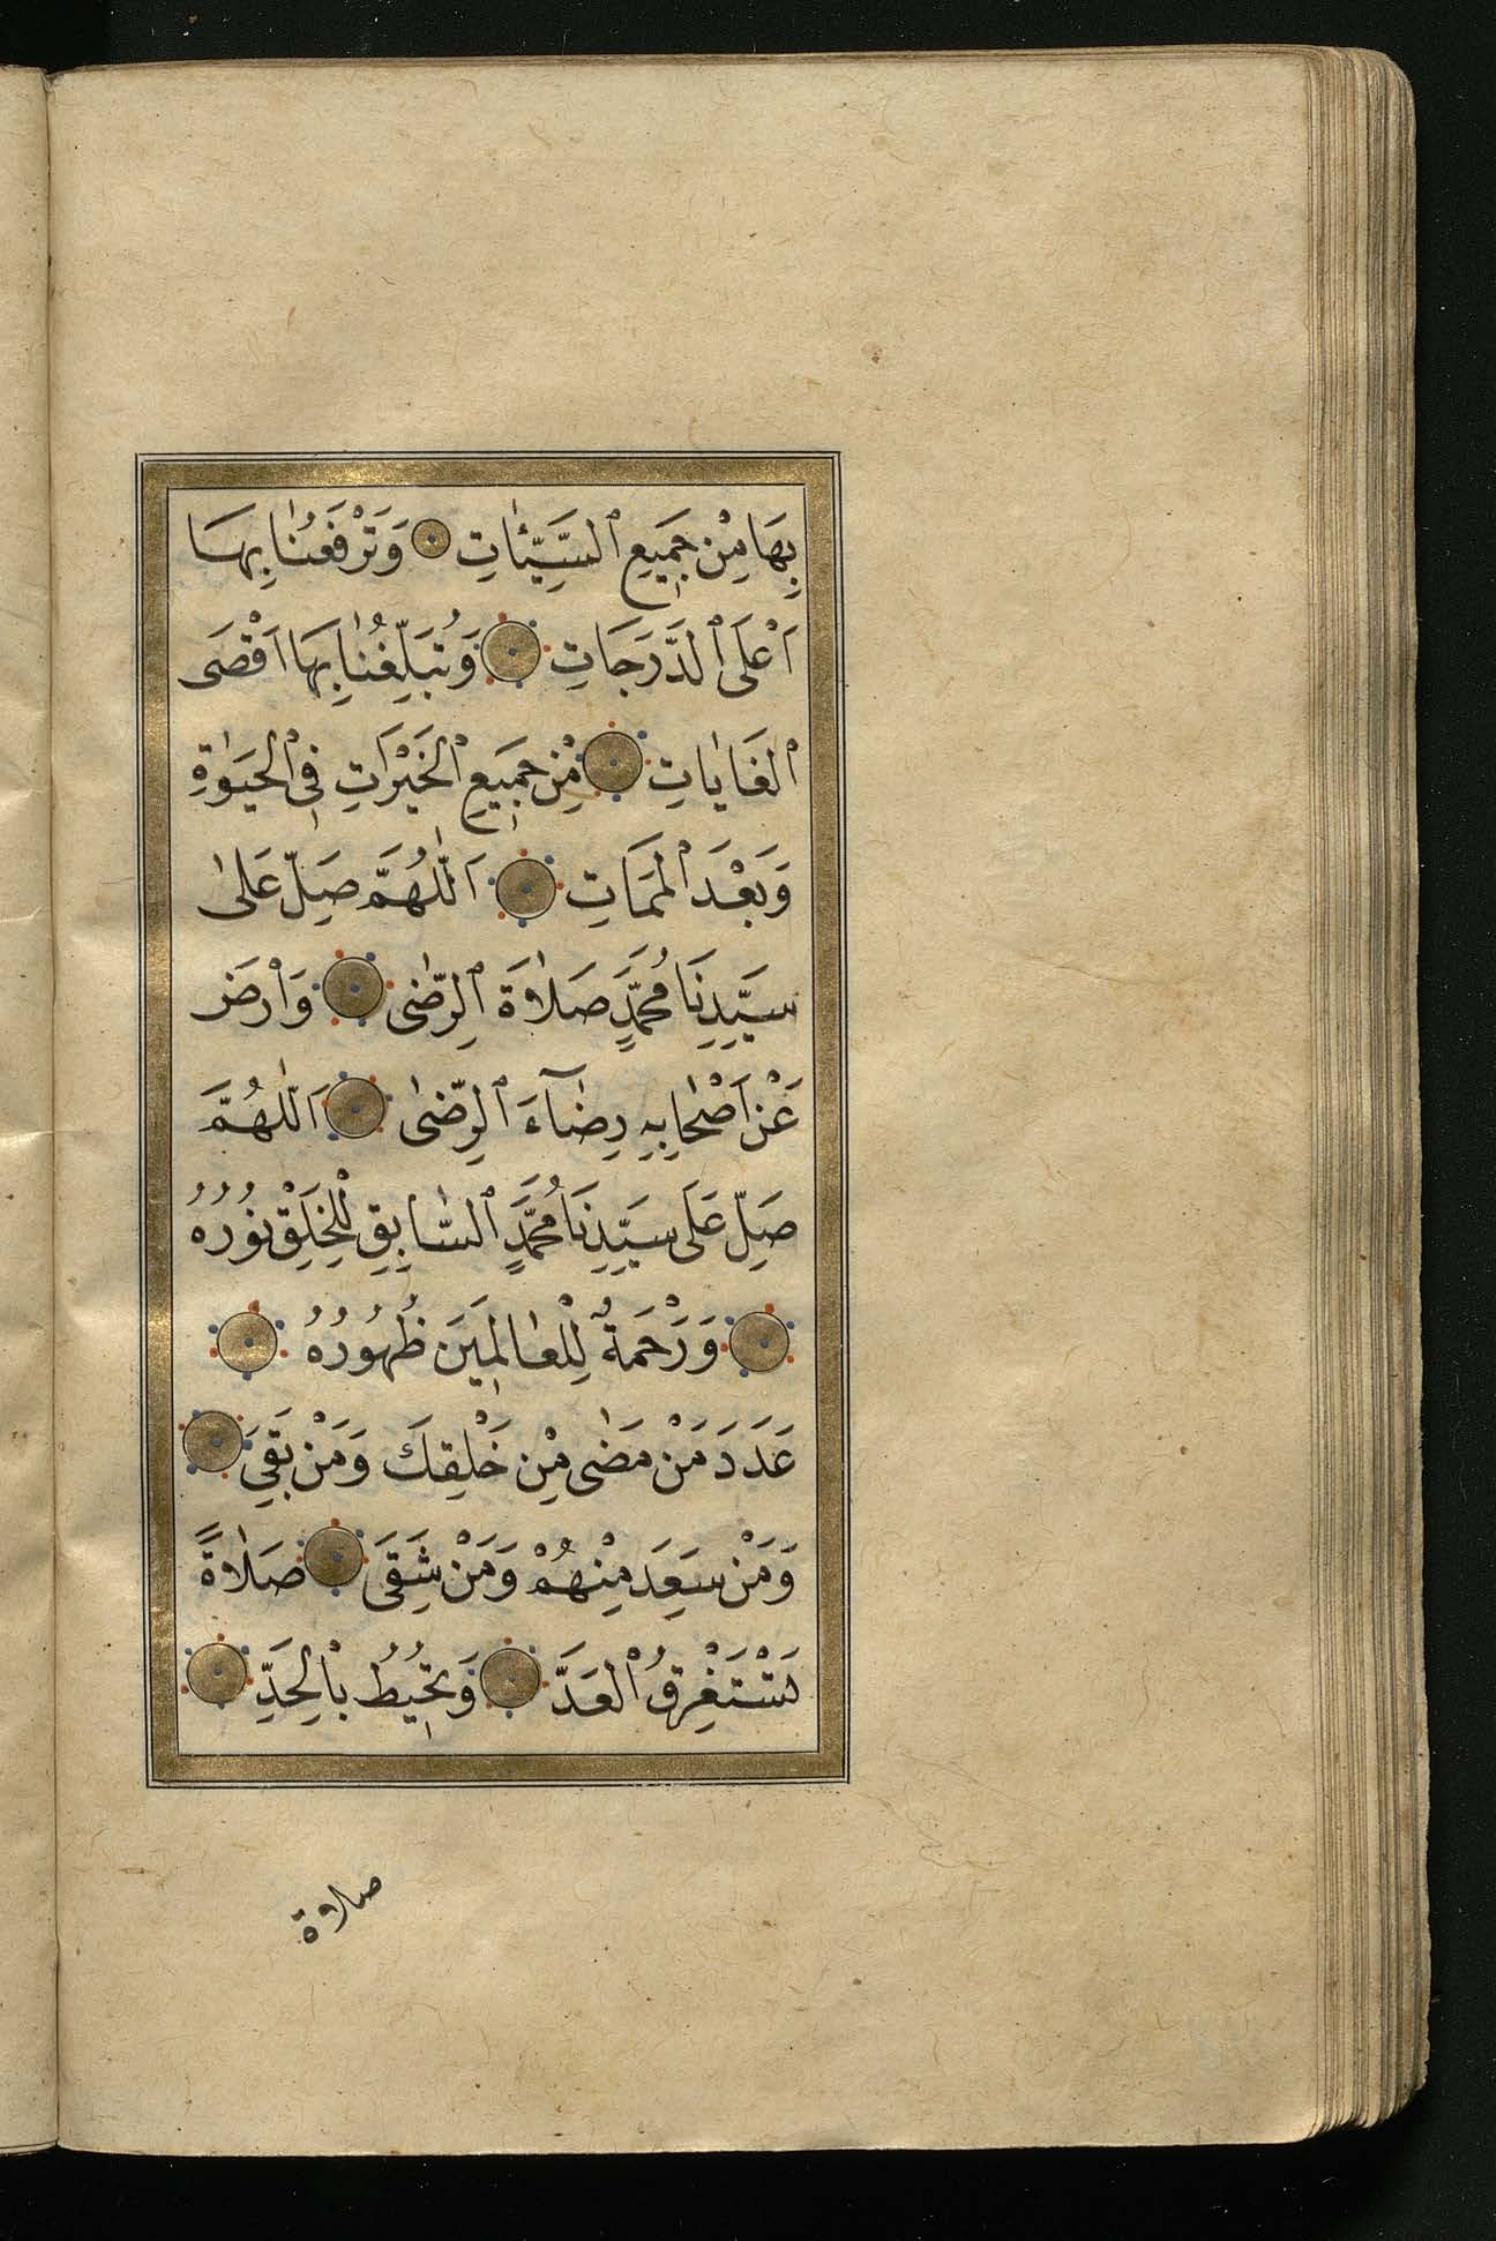 بِهَا مِنْ جَمِيعِ ٱلسَّيِّئَاتِ وَتَرْفَعُنَا بِهَا
اَعْلَى ٱلدَّرَجَاتِ وَتُبَلِّغُنَا بِهَا اَقْصَى
ٱلغَايَاتِ مِنْ جَمِيعِ ٱلخَيْرَاتِ فِي ٱلحَيَوٰةِ
وَبَعْدَ ٱلمَمَاتِ اَللّٰهُمَّ صَلِّ عَلٰى
سَيِّدِنَا مُحَمَّدٍ صَلَاةَ ٱلرِّضٰى وَٱرْضَ
عَنْ اَصْحَابِهِ رِضَاءَ ٱلرِّضٰى اَللّٰهُمَّ
صَلِّ عَلَى سَيِّدِنَا مُحَمَّدٍ ٱلسَّابِقِ لِلْخَلْقِ نُورُهُ
وَرَحْمَةٌ لِلْعَالَمِينَ ظُهُورُهُ
عَدَدَ مَنْ مَضٰى مِنْ خَلْقِكَ وَمَنْ بَقِيَ
وَمَنْ سَعِدَ مِنْهُمْ وَمَنْ شَقِيَ صَلَاةً
تَسْتَغْرِقُ ٱلعَدَّ وَتُحِيطُ بِالْحَدِّ
صلاة